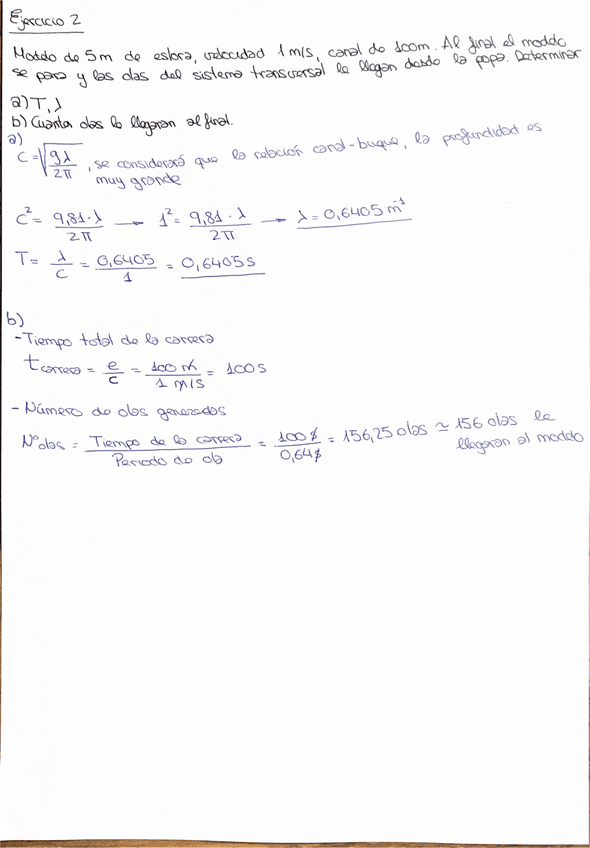 Ejercicio 2
Modelo de 5m de eslora, velocidad 1 m/s, canal de 100m. Al final el modelo
se para y las olas del sistema transversal le llegan desde la popa. Determinar
a) T, λ
b) Cuantas olas le llegaran al final.
a)
C = √(gλ/2π), se considerará que la relación canal-buque, la profundidad es
muy grande
C² = 9,81·λ/2π → 1² = 9,81·λ/2π → λ = 0,6405 m⁻¹
T = λ/C = 0,6405/1 = 0,6405 s
b)
- Tiempo total de la carrera
t carrera = e/c = 100 m/1 m/s = 100 s
- Número de olas generadas
Nº olas = Tiempo de la carrera/Periodo de ola = 100 s/0,64 s = 156,25 olas ≃ 156 olas le
llegaran al modelo